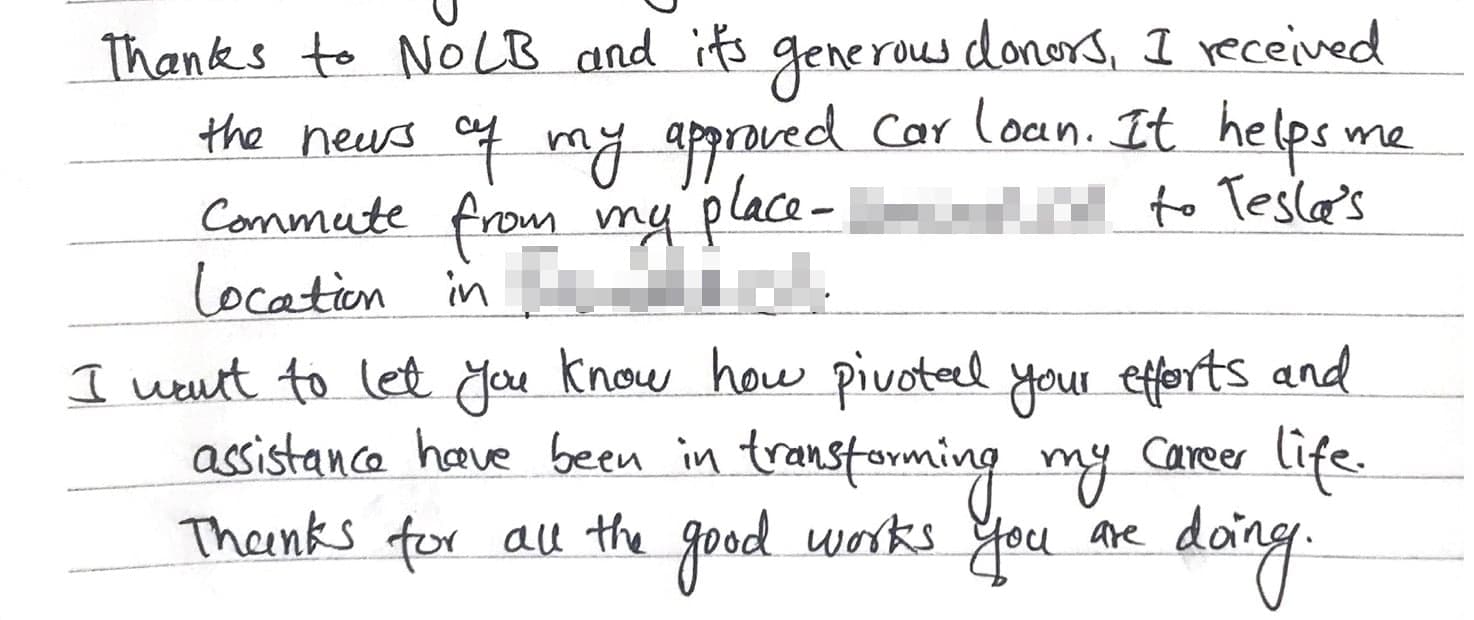 Thanks to NOLB and its generous donors, I received
the news of my approved car loan. It helps me
commute from my place - to Tesla's
location in .
I want to let you know how pivotal your efforts and
assistance have been in transforming my career life.
Thanks for all the good works you are doing.